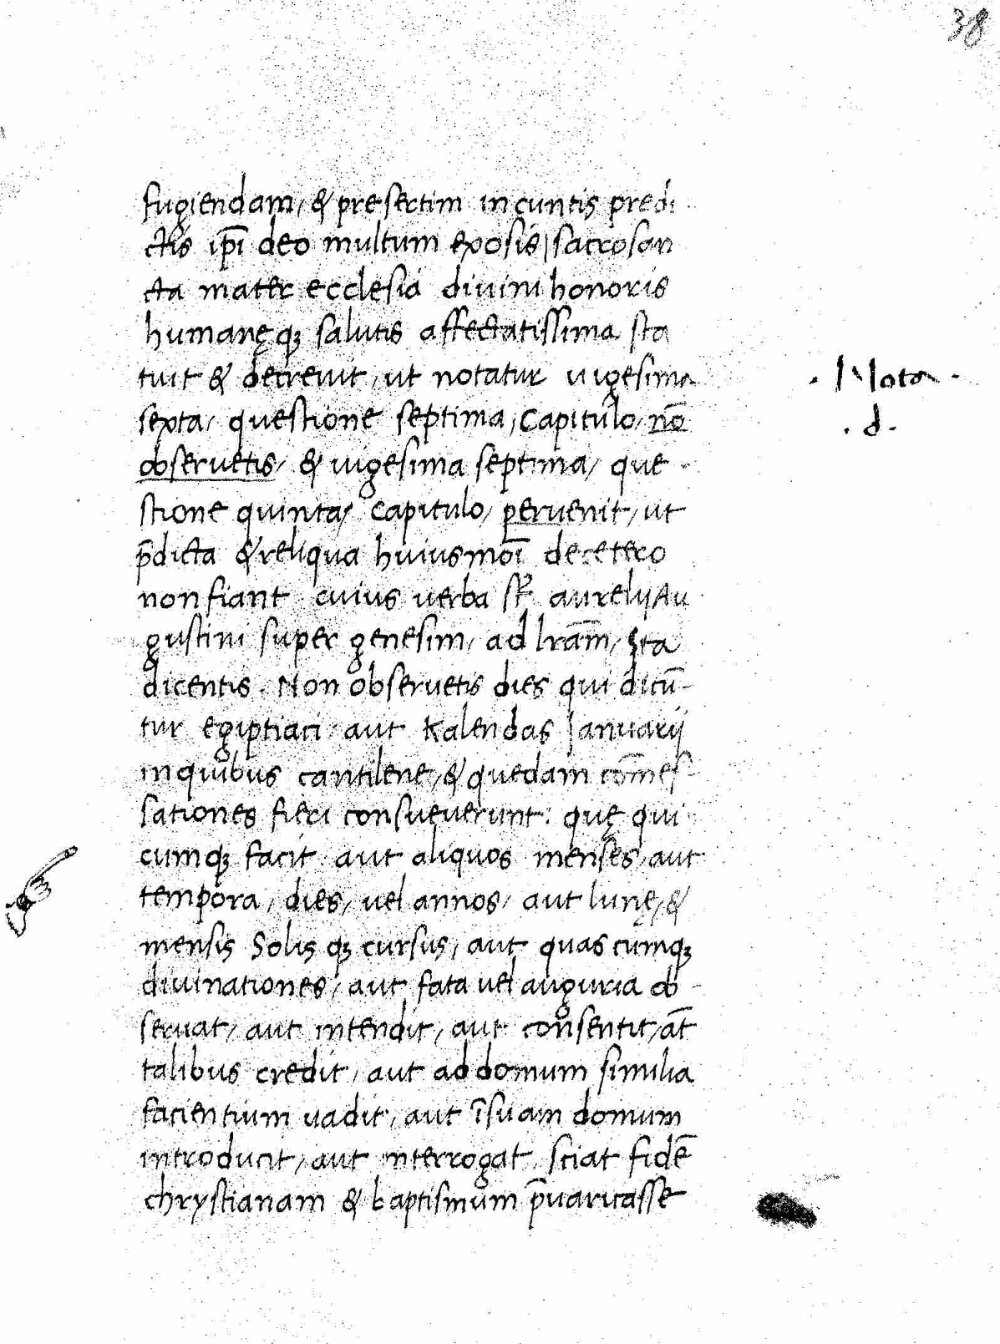 38
fugiendam, & presertim in cuntis predi
ctis ip̄i deo multum exosis, sacrosan
cta mater ecclesia divini honoris
humanęq; salutis affectatissima sta
tuit & decrevit, ut notatur vigesima
sexta, questione septima, Capitulo, nō
observetis, & vigesima septima, que-
stione quinta, capitulo, pervenit, ut
p̄dicta & reliqua huiusmōi decetero
non fiant. cuius verba st̄ aurelij Au
gustini super genesim, ad lr̄am, Ita
dicentis. Non observetis dies qui dicū-
tur egiptiaci, aut Kalendas Januarij
in quibus cantilene, & quedam cōmes-
sationes fieri consueverunt. quę qui
cumq; facit, aut aliquos menses, aut
tempora, dies, vel annos, aut lunę, &
mensis Solis q; cursus, aut quas cumq;
divinationes, aut fata vel auguria ob-
servat, aut intendit, aut consentit, aūt
talibus credit, aut ad domum similia
facientium vadit, aut ī suam domum
introducit, aut interrogat, sciat fidē
chrystianam & baptismum p̄varicasse
. Nota .
. d .